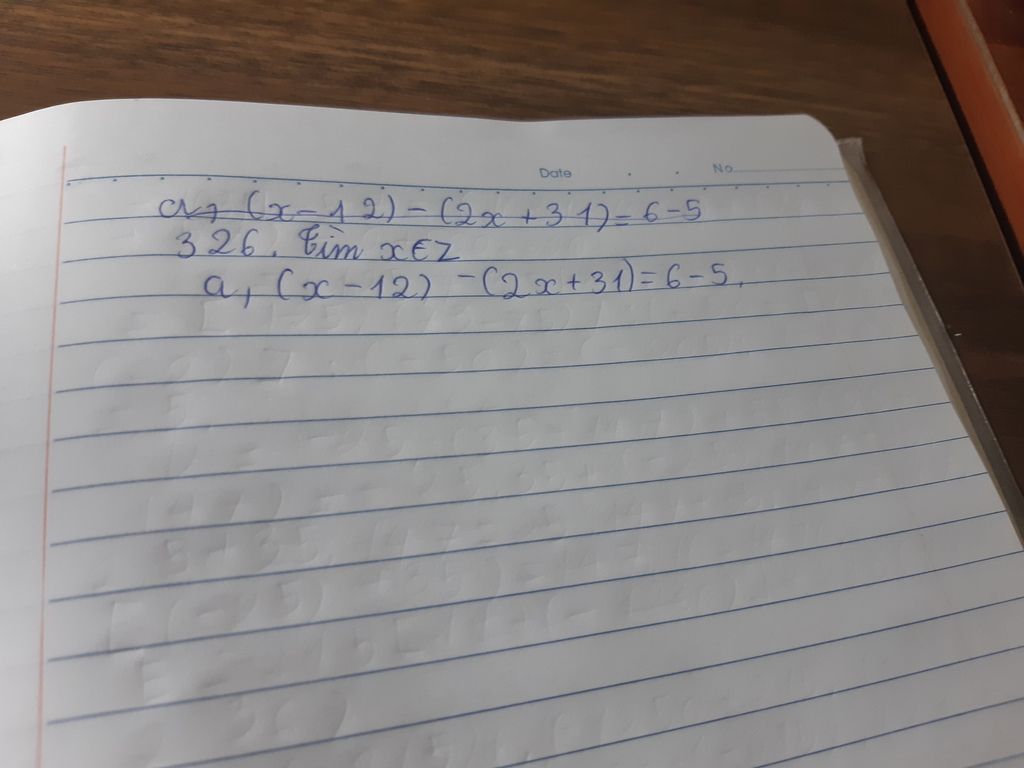 Date . . No
a, (x-12)-(2x+31)=6-5
326. Tìm x∈Z
a, (x-12) -(2x+31)=6-5.